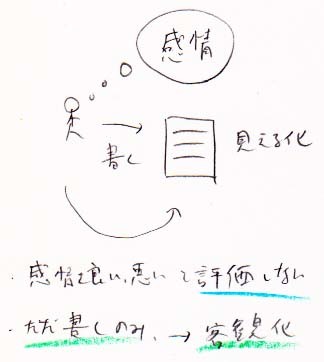 感情
→ 書く
見える化
・感情を良い、悪いで評価しない
・ただ書くのみ、→ 客観化